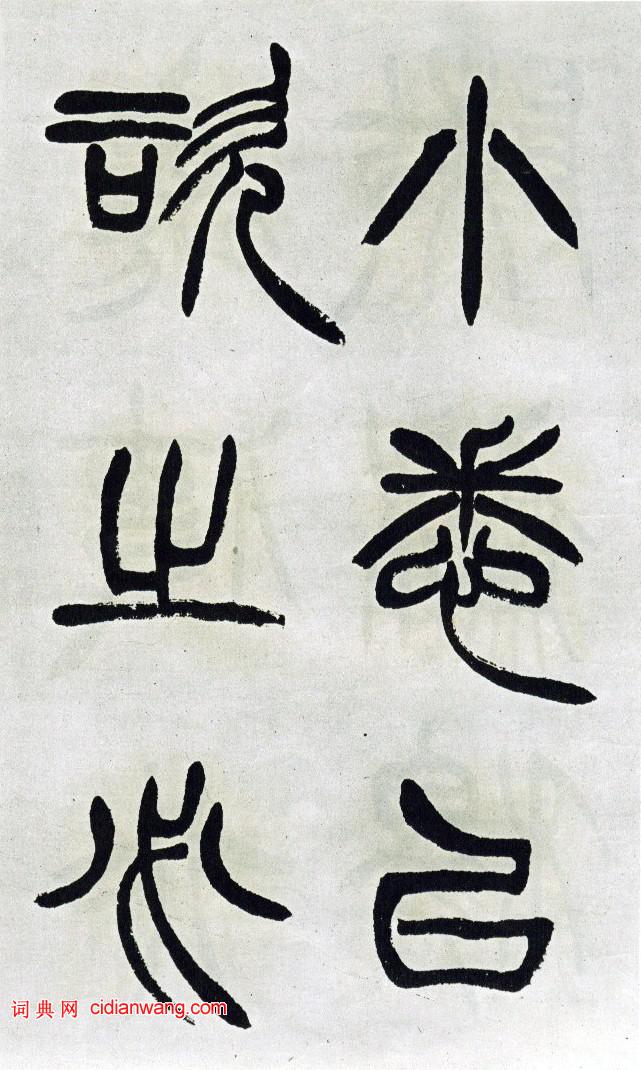 小悉以諮之必
词典网 cidianwang.com